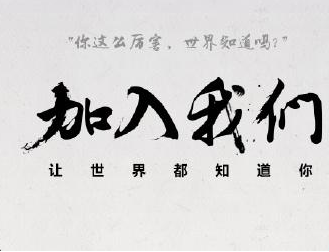 "你这么厉害，世界知道吗？"
加入我们
让世界都知道你